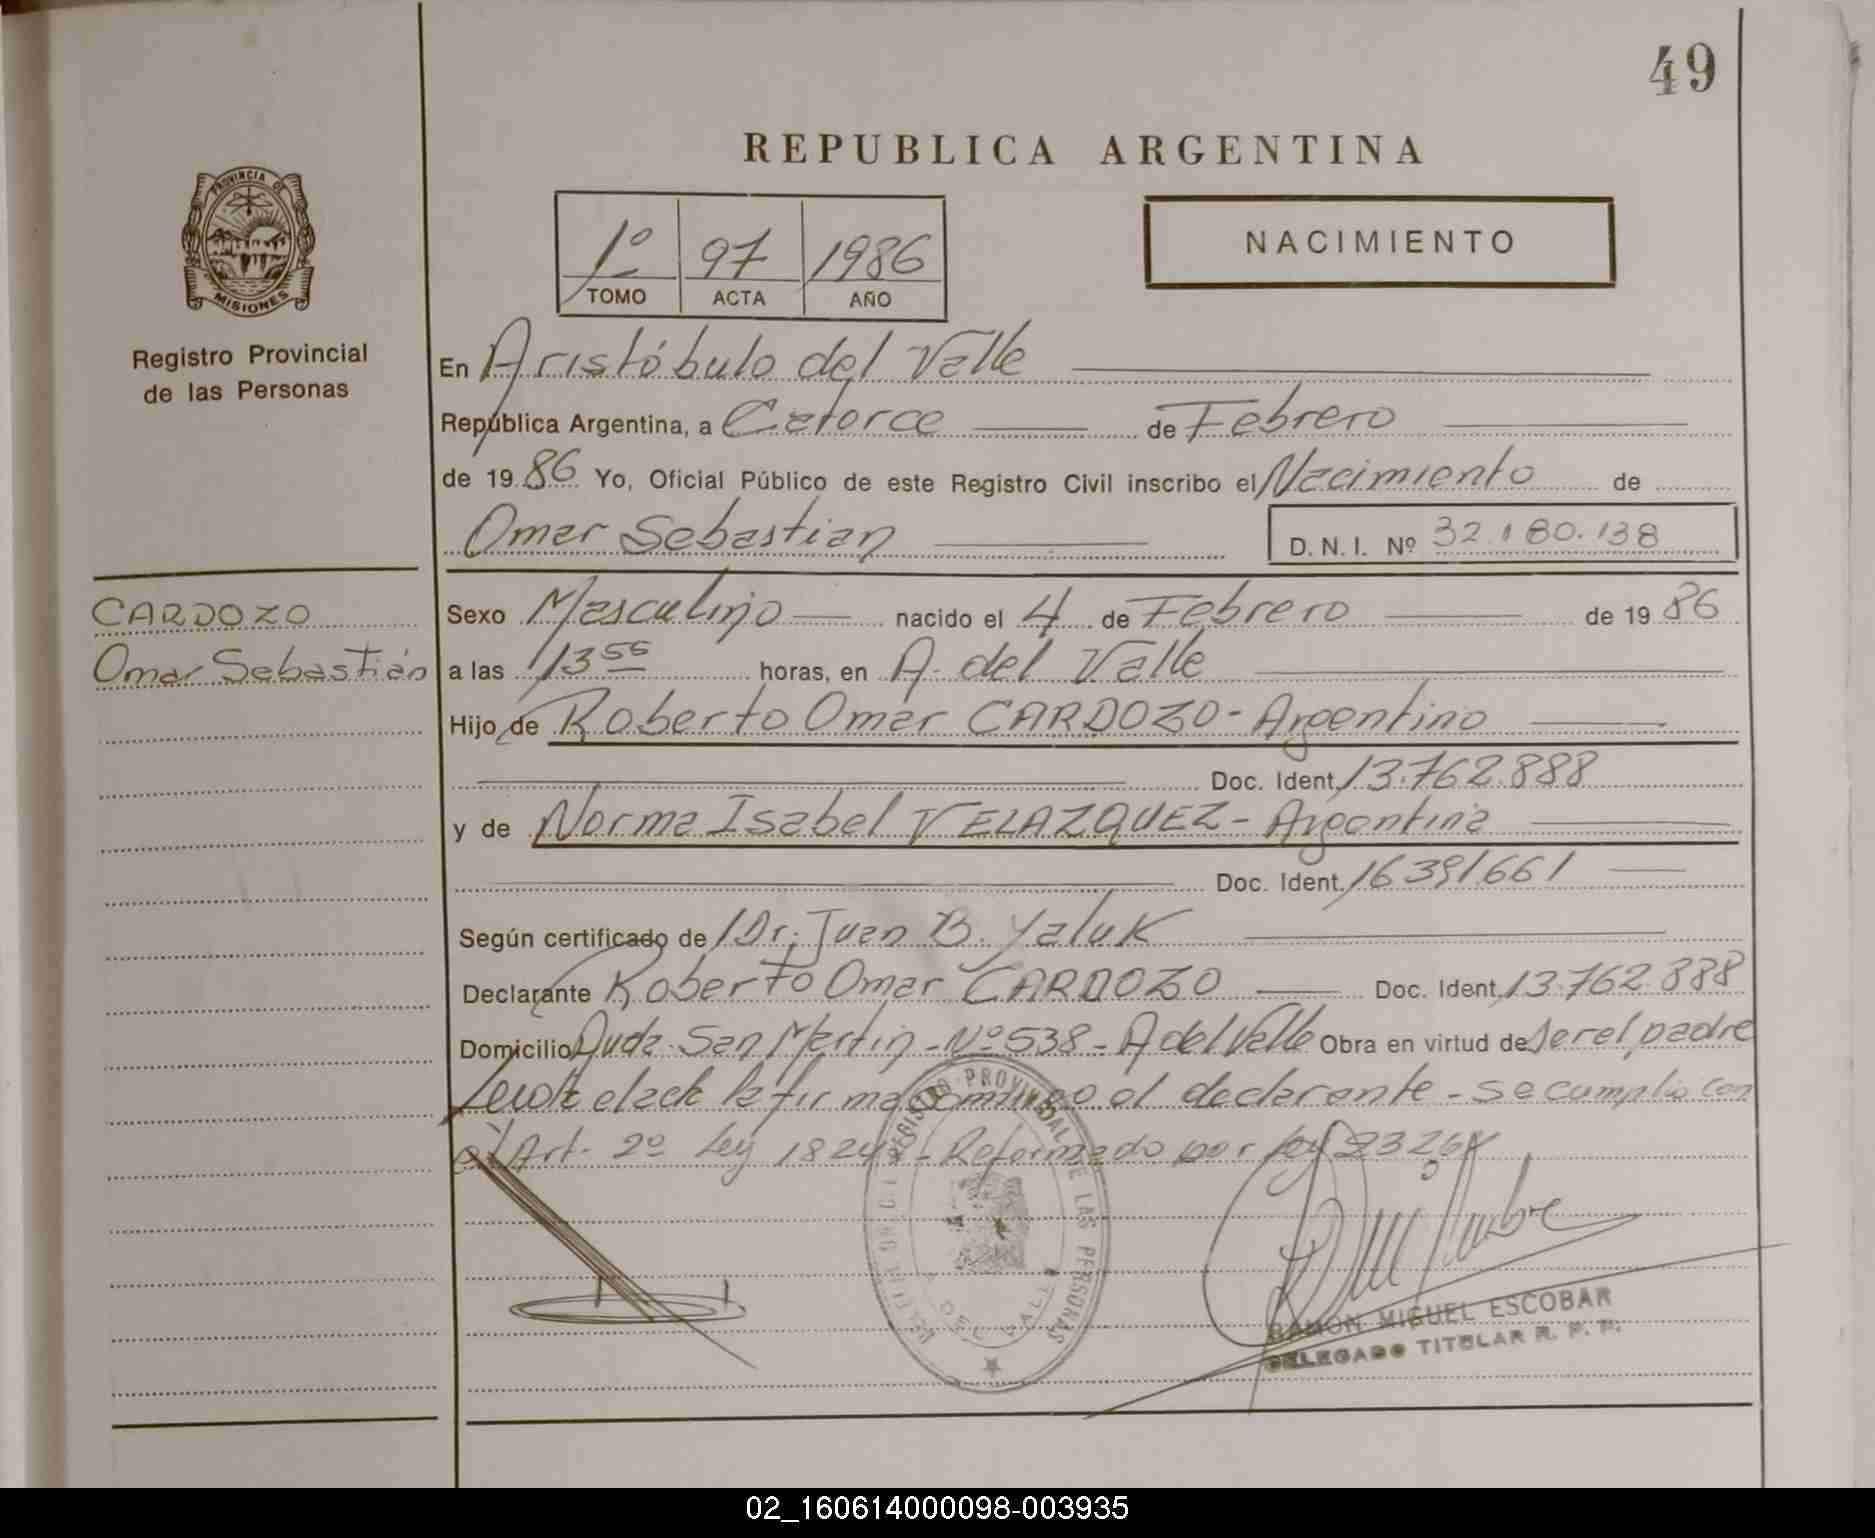 49
REPUBLICA ARGENTINA
PROVINCIA DE
MISIONES
Registro Provincial
de las Personas
1º 97 1986
TOMO ACTA AÑO
NACIMIENTO
En Aristóbulo del Valle
República Argentina, a Catorce de Febrero
de 1986 Yo, Oficial Público de este Registro Civil inscribo el Nacimiento de
Omar Sebastian D.N.I. Nº 32.180.138
CARDOZO
Omar Sebastián
Sexo Masculino nacido el 4 de Febrero de 1986
a las 13 55 horas, en A. del Valle
Hijo de Roberto Omar CARDOZO - Argentino
Doc. Ident. 13.762.888
y de Norma Isabel VELAZQUEZ - Argentina
Doc. Ident. 16391661
Según certificado de Dr. Juan B. Yaluk
Declarante Roberto Omar CARDOZO Doc. Ident. 13.762.888
Domicilio Avda. San Martin - Nº 538 - A del Valle Obra en virtud de ser el padre
Leida el acta la firma conmigo el declarante - se cumplio con
el Art. 2º Ley 18248 - Reformado por ley 23264
REGISTRO PROVINCIAL DE LAS PERSONAS
A. DEL VALLE
RAMON MIGUEL ESCOBAR
DELEGADO TITULAR R. P. P.
02_160614000098-003935